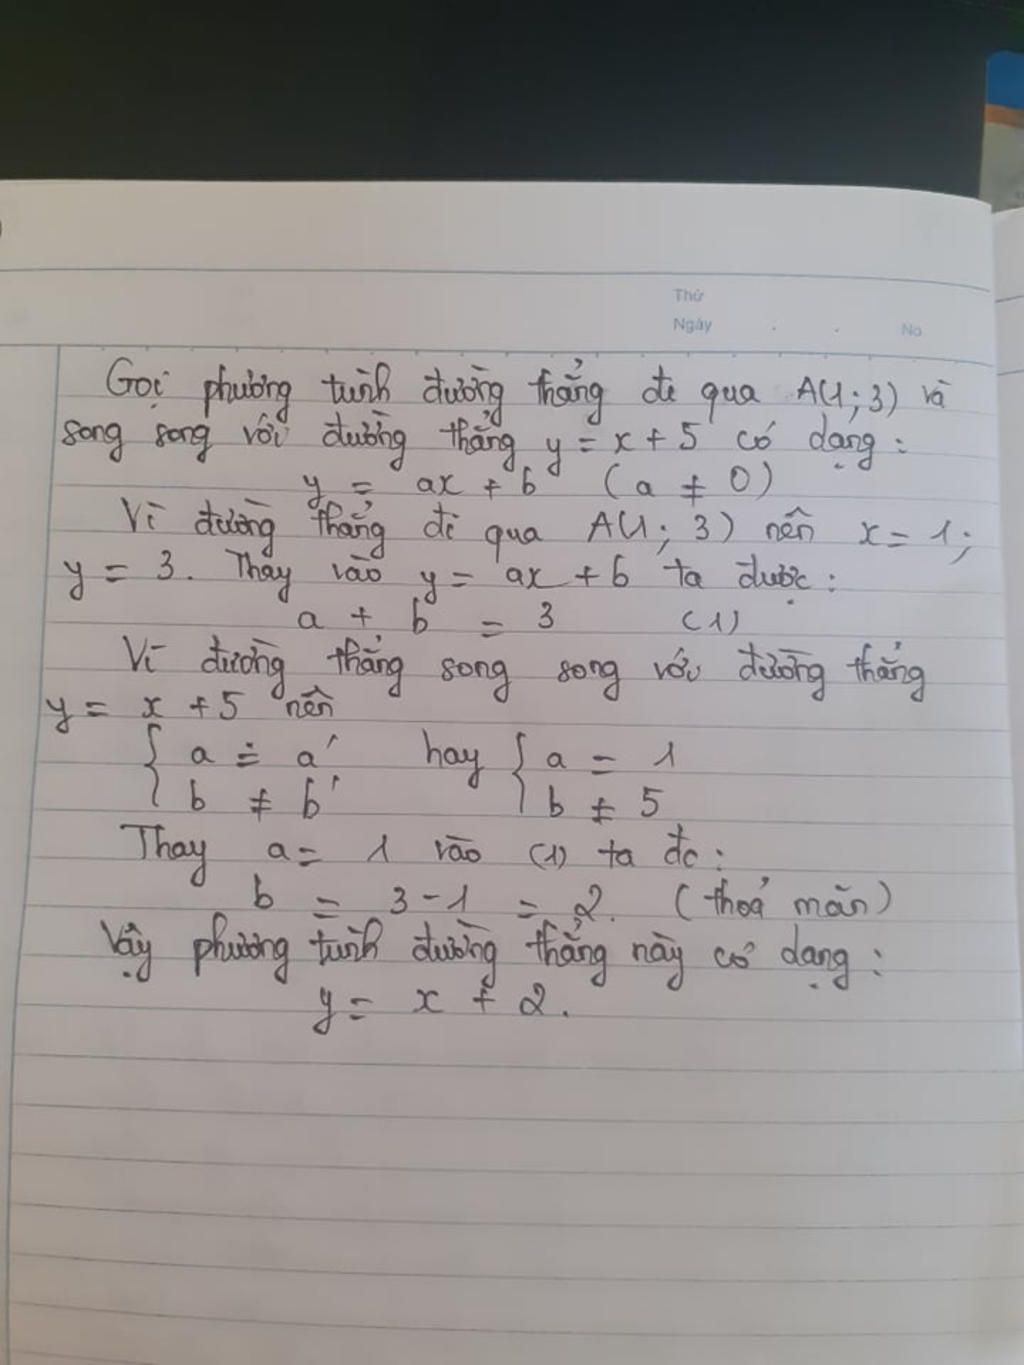 Thứ
Ngày . . No
Gọi phương trình đường thẳng đi qua A(1; 3) và
song song với đường thẳng y = x + 5 có dạng :
y = ax + b (a ≠ 0)
Vì đường thẳng đi qua A(1; 3) nên x = 1;
y = 3. Thay vào y = ax + b ta được :
a + b = 3 (1)
Vì đường thẳng song song với đường thẳng
y = x + 5 nên
{ a = a' hay { a = 1
b ≠ b' b ≠ 5
Thay a = 1 vào (1) ta đc :
b = 3 - 1 = 2. (thoả mãn)
Vậy phương trình đường thẳng này có dạng :
y = x + 2.